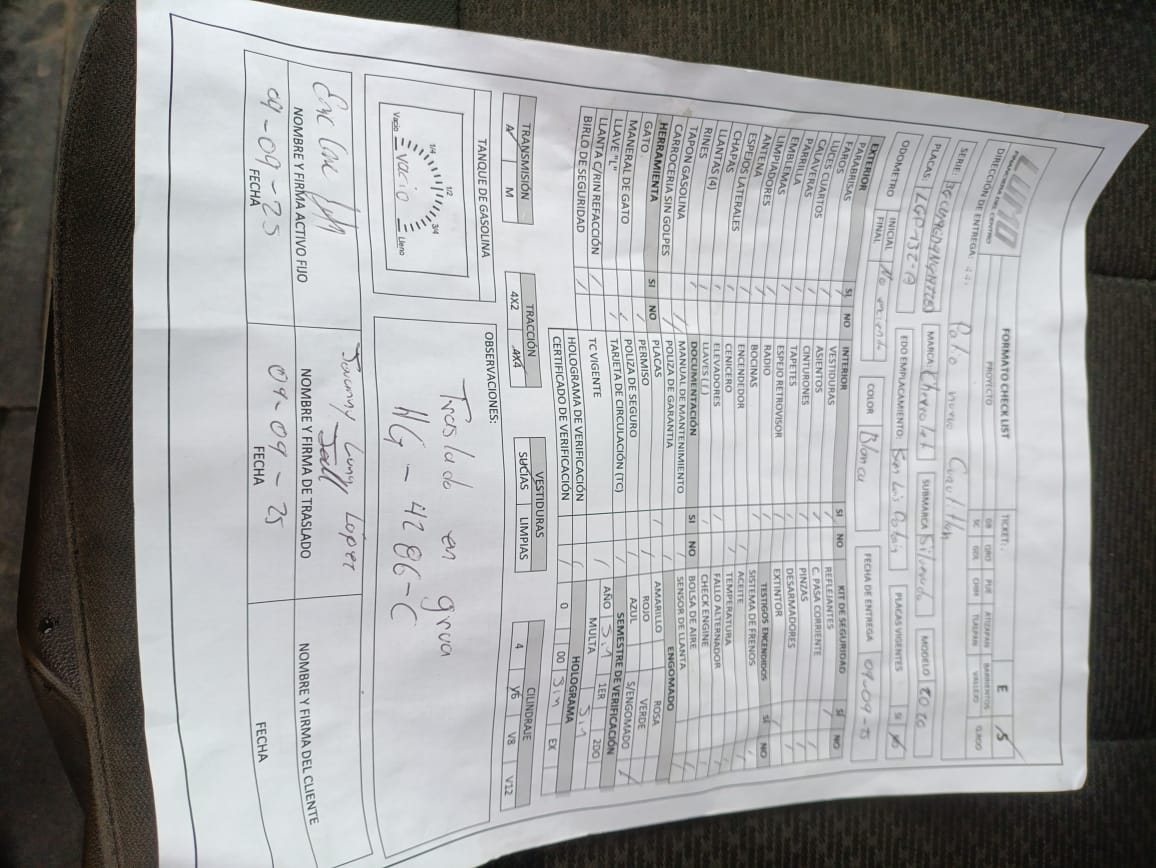 LUMO
FINANCIERA DEL CENTRO
FORMATO CHECK LIST
TICKET:
E
S
DIRECCIÓN DE ENTREGA:
PROYECTO
GB ORO PUE ATIZAPAN BARRIENTOS
SC QER CHIH TLALPAN VALLEJO G.RDO
Patio nuevo Cuautitlan
SERIE:
MARCA: Chevrolet
SUBMARCA Silverado
MODELO 2020
PLACAS:
EDO EMPLACAMIENTO: San Luis Potosi
PLACAS VIGENTES SI
ODOMETRO INICIAL No enciende
FINAL
COLOR Blanca
FECHA DE ENTREGA 09-09-25
EXTERIOR SI NO
PARABRISAS
FAROS
LUCES CUARTOS
CALAVERAS
PARRILLA
EMBLEMAS
LIMPIADORES
ANTENA
ESPEJOS LATERALES
CHAPAS
LLANTAS (4)
RINES
TAPON GASOLINA
CARROCERIA SIN GOLPES
HERRAMIENTA SI NO
GATO
MANERAL DE GATO
LLAVE "L"
LLANTA C/RIN REFACCIÓN
BIRLO DE SEGURIDAD
INTERIOR SI NO
VESTIDURAS
ASIENTOS
CINTURONES
TAPETES
ESPEJO RETROVISOR
RADIO
BOCINAS
ENCENDEDOR
CENICERO
ELEVADORES
LLAVES (1)
DOCUMENTACIÓN SI NO
MANUAL DE MANTENIMIENTO
POLIZA DE GARANTIA
PLACAS
PERMISO
POLIZA DE SEGURO
TARJETA DE CIRCULACIÓN (TC)
TC VIGENTE
HOLOGRAMA DE VERIFICACIÓN
CERTIFICADO DE VERIFICACIÓN
KIT DE SEGURIDAD SI NO
REFLEJANTES
C. PASA CORRIENTE
PINZAS
DESARMADORES
EXTINTOR
TESTIGOS ENCENDIDOS SI NO
SISTEMA DE FRENOS
ACEITE
TEMPERATURA
FALLO ALTERNADOR
CHECK ENGINE
BOLSA DE AIRE
SENSOR DE LLANTA
ENGOMADO
AMARILLO ROSA
ROJO VERDE
AZUL S/ENGOMADO
SEMESTRE DE VERIFICACIÓN
AÑO Sin 1ER 2DO
MULTA Sin
HOLOGRAMA
0 00 Sin EX
TRANSMISIÓN
A M
TRACCIÓN
4X2 4X4
VESTIDURAS
SUCIAS LIMPIAS
CILINDRAJE
4 V6 V8 V12
TANQUE DE GASOLINA
1/4 1/2 3/4
Vacio vacio Lleno
OBSERVACIONES:
Traslado en grua
HG - 4206-C
NOMBRE Y FIRMA ACTIVO FIJO
09-09-25
FECHA
Lopez
NOMBRE Y FIRMA DE TRASLADO
09-09-25
FECHA
NOMBRE Y FIRMA DEL CLIENTE
FECHA